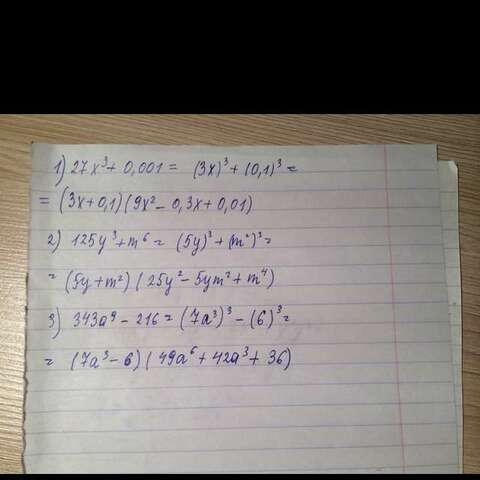 1) 27x³ + 0,001 = (3x)³ + (0,1)³ =
= (3x + 0,1) (9x² - 0,3x + 0,01)
2) 125y³ + m⁶ = (5y)³ + (m²)³ =
= (5y + m²) (25y² - 5ym² + m⁴)
3) 343a⁹ - 216 = (7a³)³ - (6)³ =
= (7a³ - 6) (49a⁶ + 42a³ + 36)